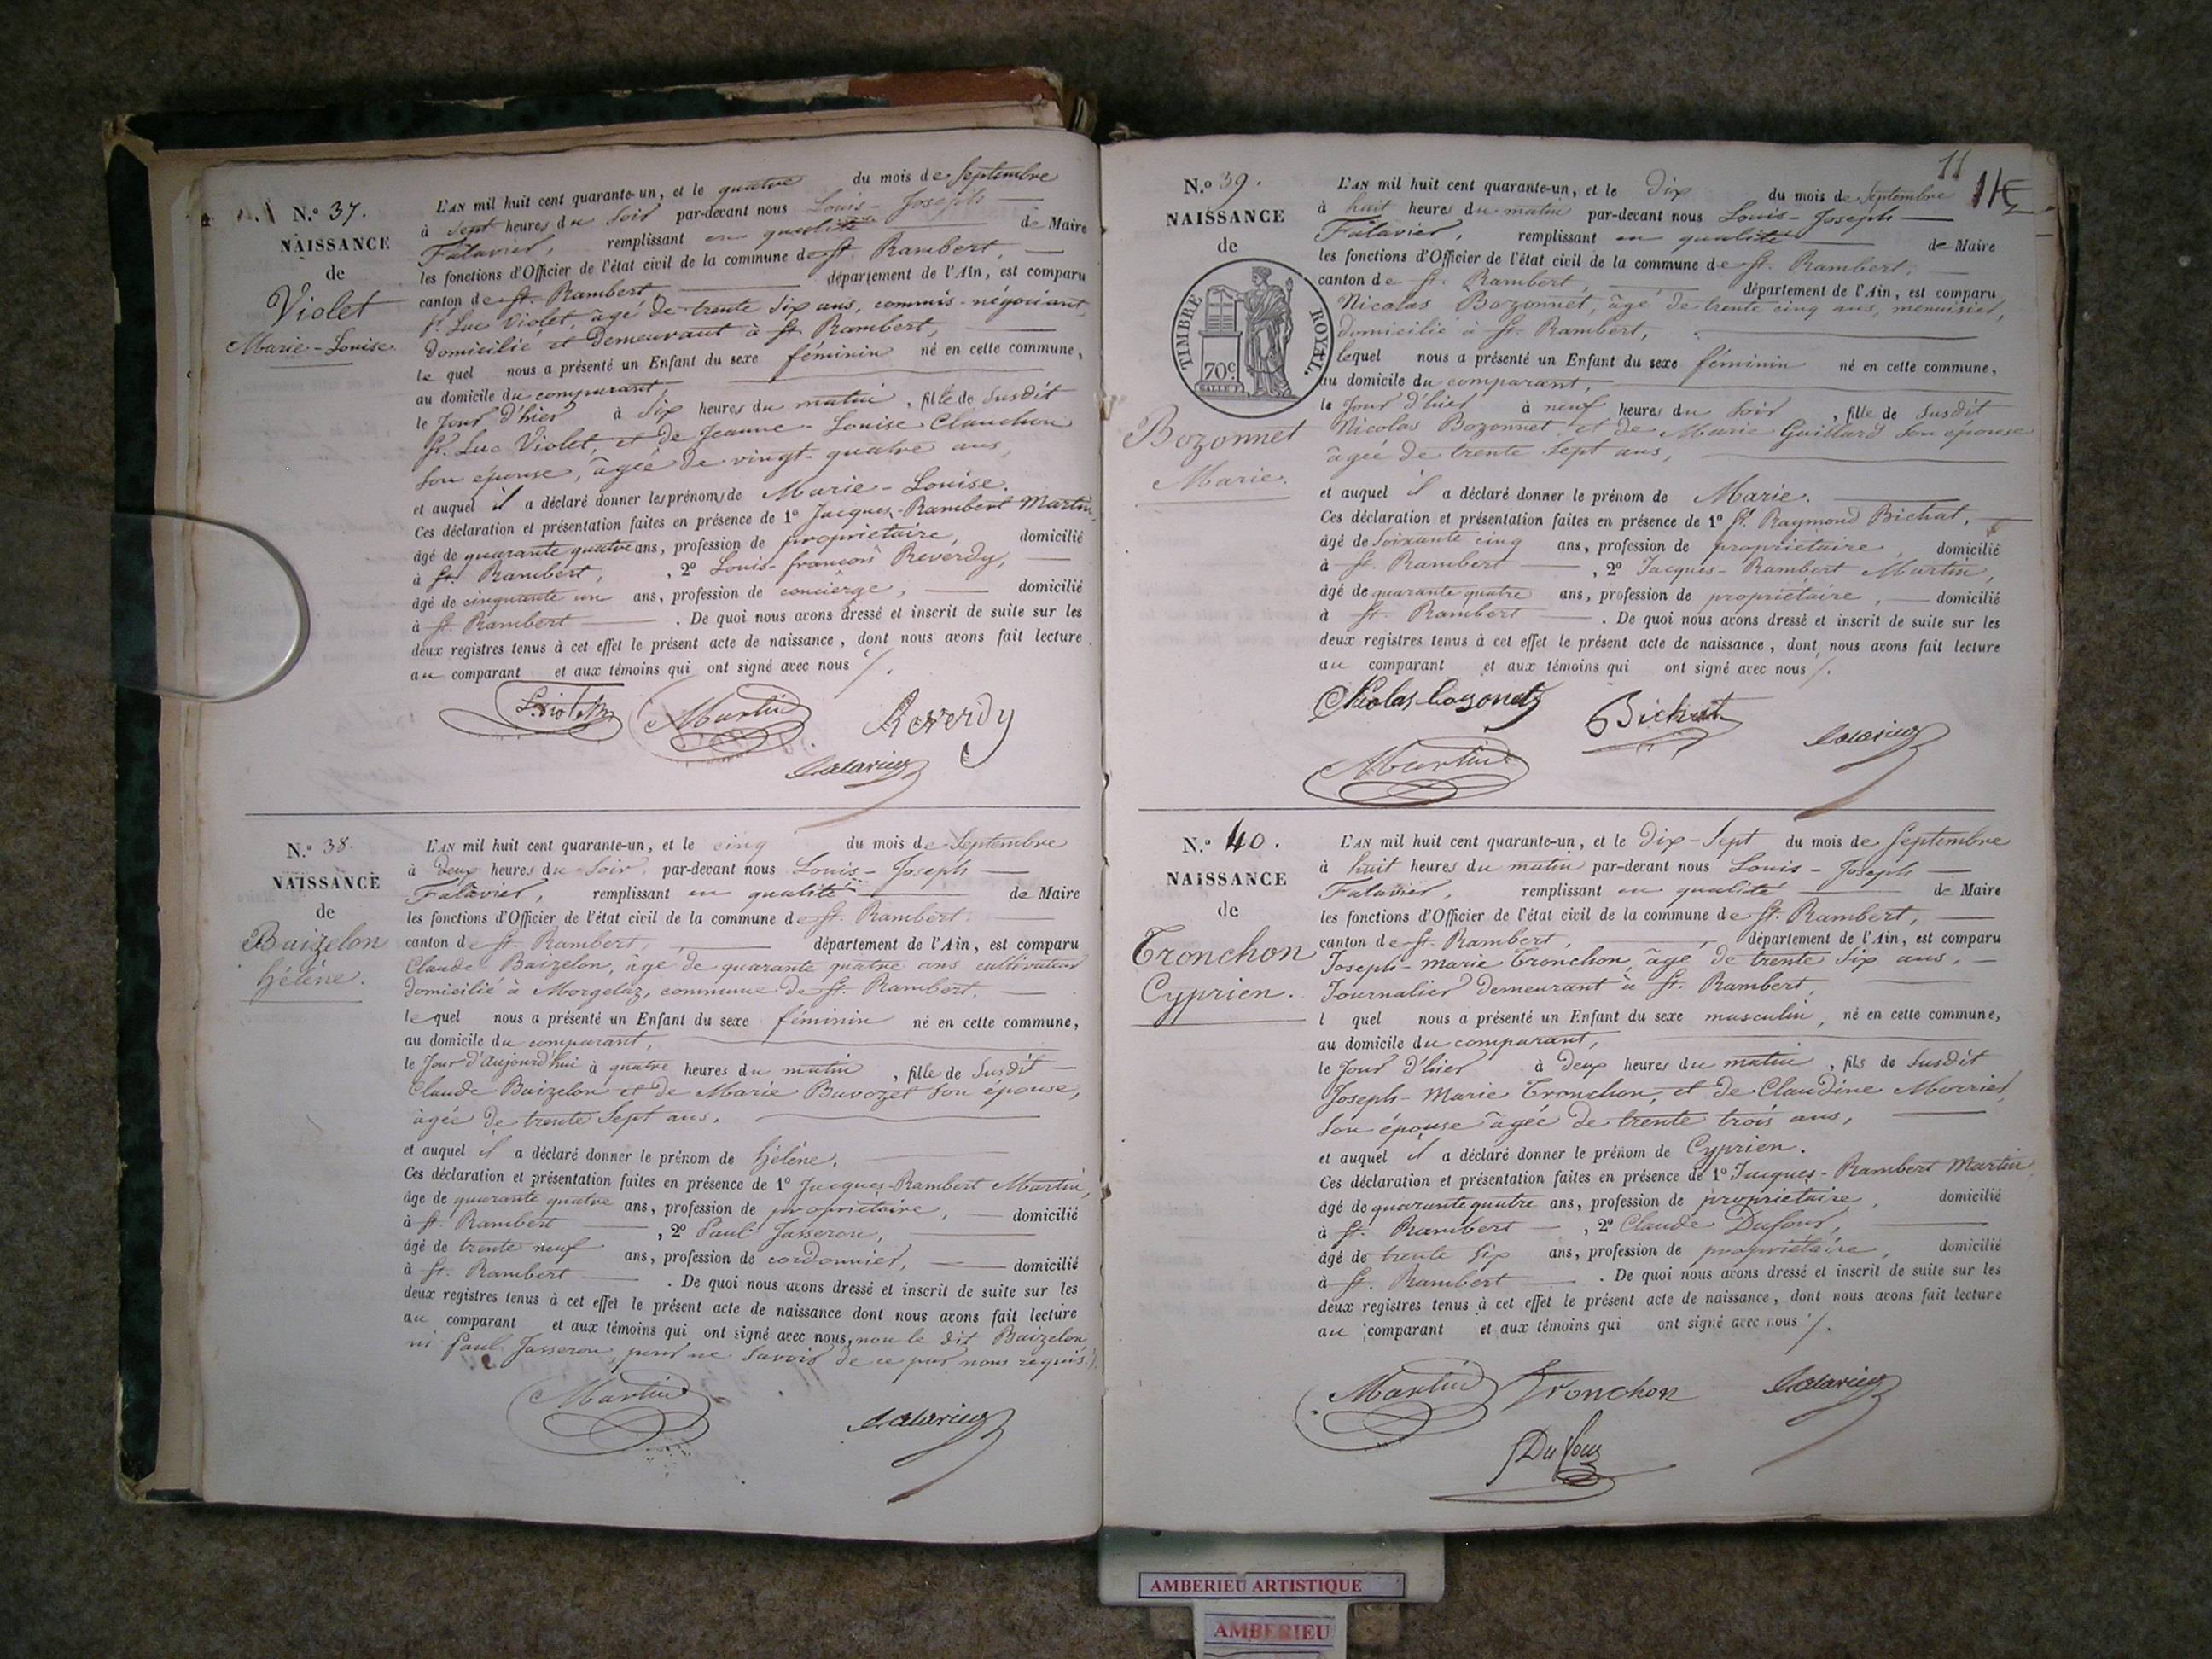 N.º 37.
NAISSANCE
de
Violet
Marie-Louise
L'AN mil huit cent quarante-un, et le quatre du mois de Septembre
à Sept heures du Soir par-devant nous Louis-Joseph
Falavier, remplissant en qualité de Maire
les fonctions d'Officier de l'état civil de la commune de St. Rambert,
canton de St. Rambert, département de l'Ain, est comparu
St. Luc Violet, âgé de trente Six ans, commis-négociant,
domicilié et demeurant à St. Rambert,
le quel nous a présenté un Enfant du sexe féminin né en cette commune,
au domicile du comparant,
le Jour d'hier à Six heures du matin, fille de Susdit
St. Luc Violet, et de Jeanne-Louise Clanchon
Son épouse, âgée de vingt-quatre ans,
et auquel il a déclaré donner les prénoms de Marie-Louise.
Ces déclaration et présentation faites en présence de 1º Jacques-Rambert Martin,
âgé de quarante quatre ans, profession de propriétaire, domicilié
à St. Rambert, , 2º Louis-françois Reverdy,
âgé de cinquante un ans, profession de concierge, domicilié
à St. Rambert . De quoi nous avons dressé et inscrit de suite sur les
deux registres tenus à cet effet le présent acte de naissance, dont nous avons fait lecture
au comparant et aux témoins qui ont signé avec nous /.
Martin Reverdy
N.º 38.
NAISSANCE
de
Baizelon
hélène.
L'AN mil huit cent quarante-un, et le cinq du mois de Septembre
à Deux heures du Soir par-devant nous Louis-Joseph
Falavier, remplissant en qualité de Maire
les fonctions d'Officier de l'état civil de la commune de St. Rambert.
canton de St. Rambert, département de l'Ain, est comparu
Claude Baizelon, âgé de quarante quatre ans cultivateur
domicilié à Morgelaz, commune de St. Rambert.
le quel nous a présenté un Enfant du sexe féminin né en cette commune,
au domicile du comparant,
le Jour d'aujourd'hui à quatre heures du matin, fille de Susdit
Claude Baizelon et de Marie Bavozet Son épouse,
âgée de trente Sept ans.
et auquel il a déclaré donner le prénom de hélène.
Ces déclaration et présentation faites en présence de 1º Jacques-Rambert Martin,
âgé de quarante quatre ans, profession de propriétaire, domicilié
à St. Rambert , 2º Paul Jasseron,
âgé de trente neuf ans, profession de cordonnier, domicilié
à St. Rambert . De quoi nous avons dressé et inscrit de suite sur les
deux registres tenus à cet effet le présent acte de naissance dont nous avons fait lecture
au comparant et aux témoins qui ont signé avec nous, non le dit Baizelon
ni Paul Jasseron, pour ne Savoir de ce par nous requis /.
Martin
11
N.º 39.
NAISSANCE
de
TIMBRE ROYAL.
70c.
Bozonnet
Marie.
L'AN mil huit cent quarante-un, et le Dix du mois de Septembre
à huit heures du matin par-devant nous Louis-Joseph
Falavier, remplissant en qualité de Maire
les fonctions d'Officier de l'état civil de la commune de St. Rambert,
canton de St. Rambert, département de l'Ain, est comparu
Nicolas Bozonnet, âgé de trente cinq ans, menuisier,
domicilié à St. Rambert,
lequel nous a présenté un Enfant du sexe féminin né en cette commune,
au domicile du comparant,
le Jour d'hier à neuf heures du Soir, fille de Susdit
Nicolas Bozonnet et de Marie Guillard Son épouse
âgée de trente Sept ans,
et auquel il a déclaré donner le prénom de Marie.
Ces déclaration et présentation faites en présence de 1º St. Raymond Bichat,
âgé de Soixante cinq ans, profession de propriétaire, domicilié
à St. Rambert , 2º Jacques-Rambert Martin,
âgé de quarante quatre ans, profession de propriétaire, domicilié
à St. Rambert . De quoi nous avons dressé et inscrit de suite sur les
deux registres tenus à cet effet le présent acte de naissance, dont nous avons fait lecture
au comparant et aux témoins qui ont signé avec nous /.
Bichat
Martin
N.º 40.
NAISSANCE
de
Tronchon
Cyprien.
L'AN mil huit cent quarante-un, et le Dix-Sept du mois de Septembre
à huit heures du matin par-devant nous Louis-Joseph
Falavier, remplissant en qualité de Maire
les fonctions d'Officier de l'état civil de la commune de St. Rambert,
canton de St. Rambert, département de l'Ain, est comparu
Joseph-Marie Tronchon, âgé de trente Six ans,
Journalier demeurant à St. Rambert,
l quel nous a présenté un Enfant du sexe masculin, né en cette commune,
au domicile du comparant,
le Jour d'hier à Deux heures du matin, fils de Susdit
Joseph-Marie Tronchon, et de Claudine Morrier,
Son épouse âgée de trente trois ans,
et auquel il a déclaré donner le prénom de Cyprien.
Ces déclaration et présentation faites en présence de 1º Jacques-Rambert Martin
âgé de quarante quatre ans, profession de propriétaire, domicilié
à St. Rambert , 2º Claude Dufour,
âgé de trente Six ans, profession de propriétaire, domicilié
à St. Rambert . De quoi nous avons dressé et inscrit de suite sur les
deux registres tenus à cet effet le présent acte de naissance, dont nous avons fait lecture
au comparant et aux témoins qui ont signé avec nous /.
Martin Tronchon
Dufour
AMBERIEU ARTISTIQUE
AMBERIEU